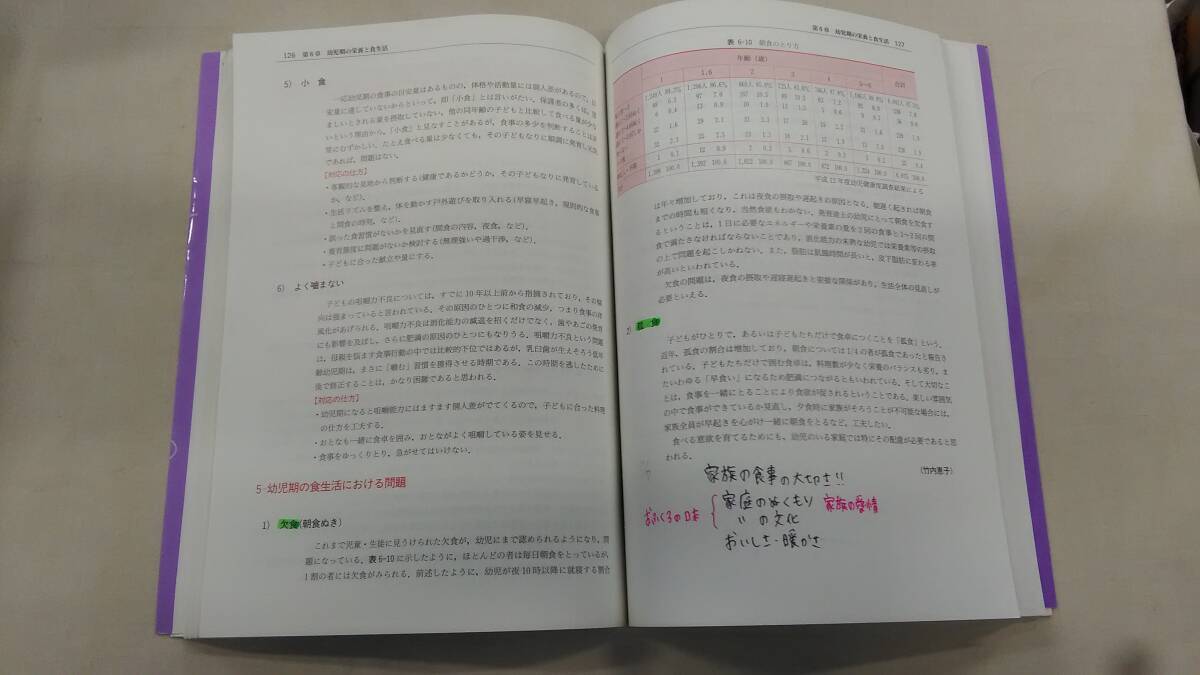 126 第6章 幼児期の栄養と食生活
5) 小食
一応幼児期の食事の目安量はあるものの，体格や活動量には個人差があるので，目
安量に達していないからといって，即「小食」とは言いがたい．保護者の多くは，望
ましいとされる量を摂取していない，他の同年齢の子どもと比較して食べる量が少な
いという理由から，「小食」と見なすことがあるが，食事の多少を判断することは非
常にむずかしい．たとえ食べる量は少なくても，その子どもなりに順調に発育し元気
であれば，問題はない．
【対応の仕方】
・客観的な見地から判断する（健康であるかどうか，その子どもなりに発育している
か，など）．
・生活リズムを整え，体を動かす戸外遊びを取り入れる（早寝早起き，規則的な食事
と間食の時刻，など）．
・誤った食習慣がないかを見直す（間食の内容，夜食，など）．
・養育態度に問題がないか検討する（無理強いや過干渉，など）．
・子どもに合った献立や量にする．
6) よく噛まない
子どもの咀嚼力不良については，すでに10年以上前から指摘されており，その傾
向は強まっていると言われている．その原因のひとつに和食の減少，つまり食事の洋
風化があげられる．咀嚼力不良は消化能力の減退を招くだけでなく，歯やあごの発育
にも影響を及ぼし，さらに肥満の原因のひとつにもなりうる．咀嚼力不良という問題
は，母親を悩ます食事行動の中では比較的下位ではあるが，乳臼歯が生えそろう低年
齢幼児期は，まさに「噛む」習慣を獲得させる時期である．この時期を逃したために
後で修正することは，かなり困難であると思われる．
【対応の仕方】
・幼児期になると咀嚼能力にはますます個人差がでてくるので，子どもに合った料理
の仕方を工夫する．
・おとなも一緒に食卓を囲み，おとながよく咀嚼している姿を見せる．
・食事をゆっくりとり，急がせてはいけない．
5 幼児期の食生活における問題
1) 欠食(朝食ぬき)
これまで児童・生徒に見うけられた欠食が，幼児にまで認められるようになり，問
題になっている．表6-10に示したように，ほとんどの者は毎日朝食をとっているが，
1割の者には欠食がみられる．前述したように，幼児が夜10時以降に就寝する割合
第6章 幼児期の栄養と食生活 127
表 6-10 朝食のとり方
年齢（歳）
1 1.6 2 3 4 5~6 合計
平成12年度幼児健康度調査結果による
は年々増加しており，これは夜食の摂取や遅起きの原因となる．朝遅く起きれば朝食
までの時間も短くなり，当然食欲もわかない．発育途上の幼児にとって朝食を欠食す
るということは，1日に必要なエネルギーや栄養素の量を2回の食事と1～2回の間
食で満たさなければならないことであり，消化能力の未熟な幼児では栄養素等の摂取
の上で問題を起こしかねない．また，脂肪は飢餓時間が長いと，皮下脂肪に変わる率
が高いといわれている．
欠食の問題は，夜食の摂取や遅寝遅起きと密接な関係があり，生活全体の見直しが
必要といえる．
2) 孤食
子どもがひとりで，あるいは子どもたちだけで食卓につくことを「孤食」という．
近年，孤食の割合は増加しており，朝食については1/4の者が孤食であったと報告さ
れている．子どもたちだけで囲む食卓は，料理数が少なく栄養のバランスも劣り，ま
たいわゆる「早食い」になるため肥満につながるともいわれている．そして大切なこ
とは，食事を一緒にとることにより食欲が促されるということである．楽しい雰囲気
の中で食事ができているか見直し，夕食時に家族がそろうことが不可能な場合には，
家族全員が早起きを心がけ一緒に朝食をとるなど，工夫したい．
食べる意欲を育てるためにも，幼児のいる家庭では特にその配慮が必要であると思
われる．
（竹内恵子）
家族の食事の大切さ!!
おふくろの味 家庭のぬくもり 家族の愛情
〃 の文化
おいしさ・暖かさ